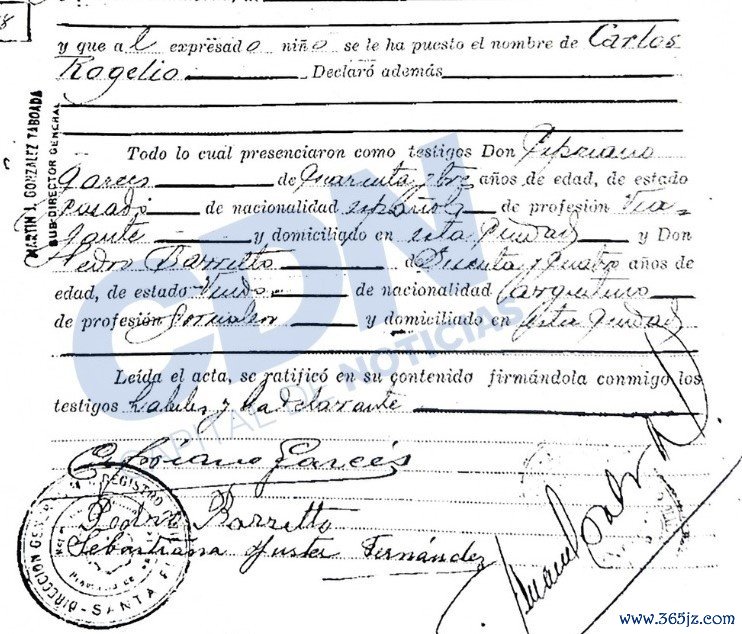 y que al expresado niño se le ha puesto el nombre de Carlos
Rogelio Declaró además
MARTIN J. GONZALEZ TABOADA
SUB-DIRECTOR GENERAL
Todo lo cual presenciaron como testigos Don Cipriano
Garcés de cuarenta y tres años de edad, de estado
casado de nacionalidad española de profesión
y domiciliado en esta Ciudad y Don
Pedro Barretto de y cuatro años de
edad, de estado de nacionalidad argentino
de profesión jornalero y domiciliado en esta Ciudad
Leída el acta, se ratificó en su contenido firmándola conmigo los
testigos y la declarante
Cipriano Garcés
Pedro Barretto
Sebastiana Yuste Fernández
REGISTRO
DIRECCION GENERAL
SANTA FE
CDN
CAPITAL DE NOTICIAS
www.365jz.com